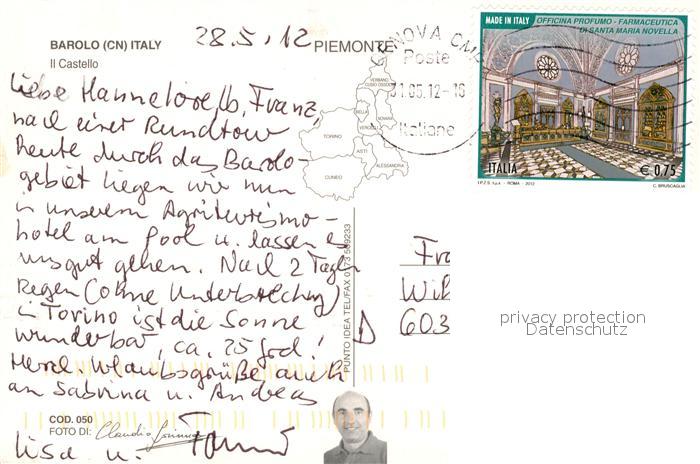 BAROLO (CN) ITALY
Il Castello
28.5.12
PIEMONTE
Liebe Hannelore, Franz,
nach einer Rundtour
heute durch das Barolo-
gebiet liegen wir nun
in unserem Agriturismo-
hotel am Pool u. lassen es
uns gut gehen. Nach 2 Tagen
Regen (ohne Unterbrechung)
in Torino ist die Sonne
wunderbar, ca. 25 Grd!
Herzl. Urlaubsgrüße auch
an Sabrina u. Andreas
Lisa u.
COD. 050
FOTO DI:
VERBANO
CUSIO OSSOLA
BIELLA
NOVARA
VERCELLI
TORINO
ASTI
ALESSANDRIA
CUNEO
PUNTO IDEA TEL/FAX 0173 509233
NOVA CMP
Poste
31.05.12-18
Italiane
MADE IN ITALY
OFFICINA PROFUMO - FARMACEUTICA
DI SANTA MARIA NOVELLA
ITALIA
€ 0,75
I.P.Z.S. S.p.A. - ROMA - 2012
C. BRUSCAGLIA
Fra
Wil
D 603
privacy protection
Datenschutz